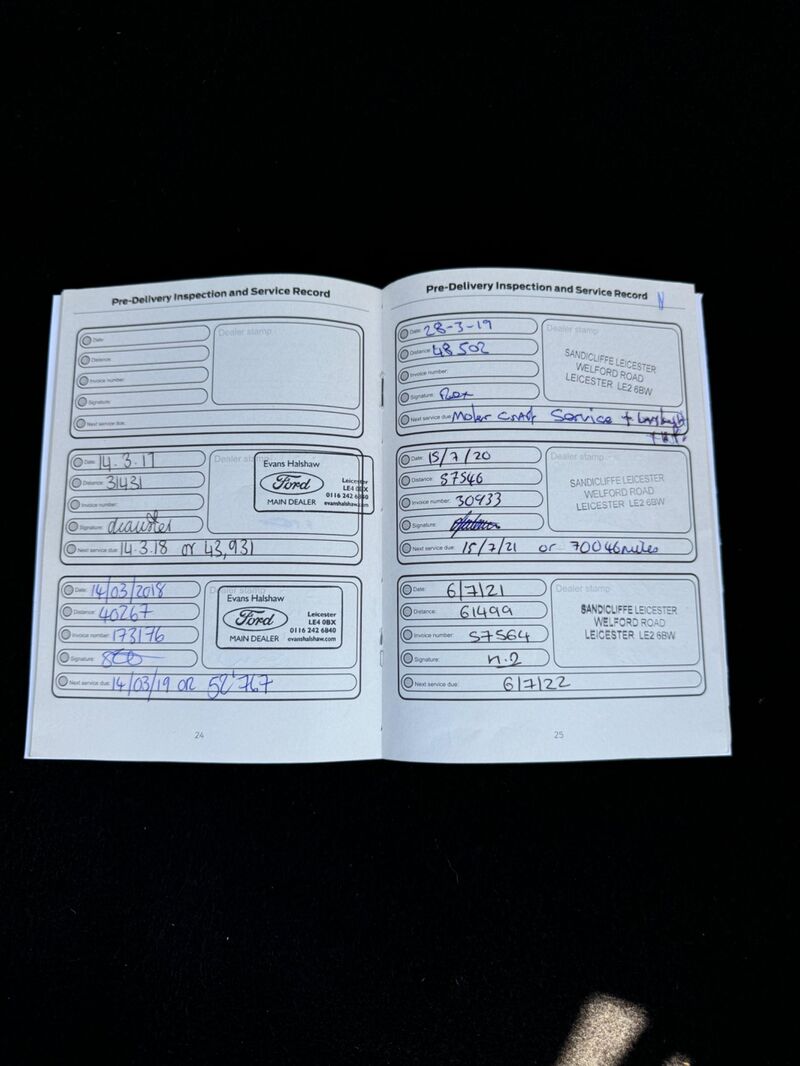 Pre-Delivery Inspection and Service Record
Date:
Dealer stamp
Distance:
Invoice number:
Signature:
Next service due:
Date: 14.3.17
Dealer stamp
Distance: 31431
Invoice number:
Signature:
Next service due: 14.3.18 or 43,931
Evans Halshaw
Ford
Leicester
LE4 0BX
0116 242 6840
MAIN DEALER evanshalshaw.com
Date: 14/03/2018
Dealer stamp
Distance: 40267
Invoice number: 173176
Signature:
Next service due: 14/03/19 OR 52'767
Evans Halshaw
Ford
Leicester
LE4 0BX
0116 242 6840
MAIN DEALER evanshalshaw.com
24
Pre-Delivery Inspection and Service Record
Date: 28-3-19
Dealer stamp
Distance: 48502
Invoice number:
Signature:
Next service due: Motor Craft Service +
SANDICLIFFE LEICESTER
WELFORD ROAD
LEICESTER LE2 6BW
Date: 15/7/20
Dealer stamp
Distance: 57546
Invoice number: 30933
Signature:
Next service due: 15/7/21 or 70046 miles
SANDICLIFFE LEICESTER
WELFORD ROAD
LEICESTER LE2 6BW
Date: 6/7/21
Dealer stamp
Distance: 61499
Invoice number: 57564
Signature: n.2
Next service due: 6/7/22
SANDICLIFFE LEICESTER
WELFORD ROAD
LEICESTER LE2 6BW
25